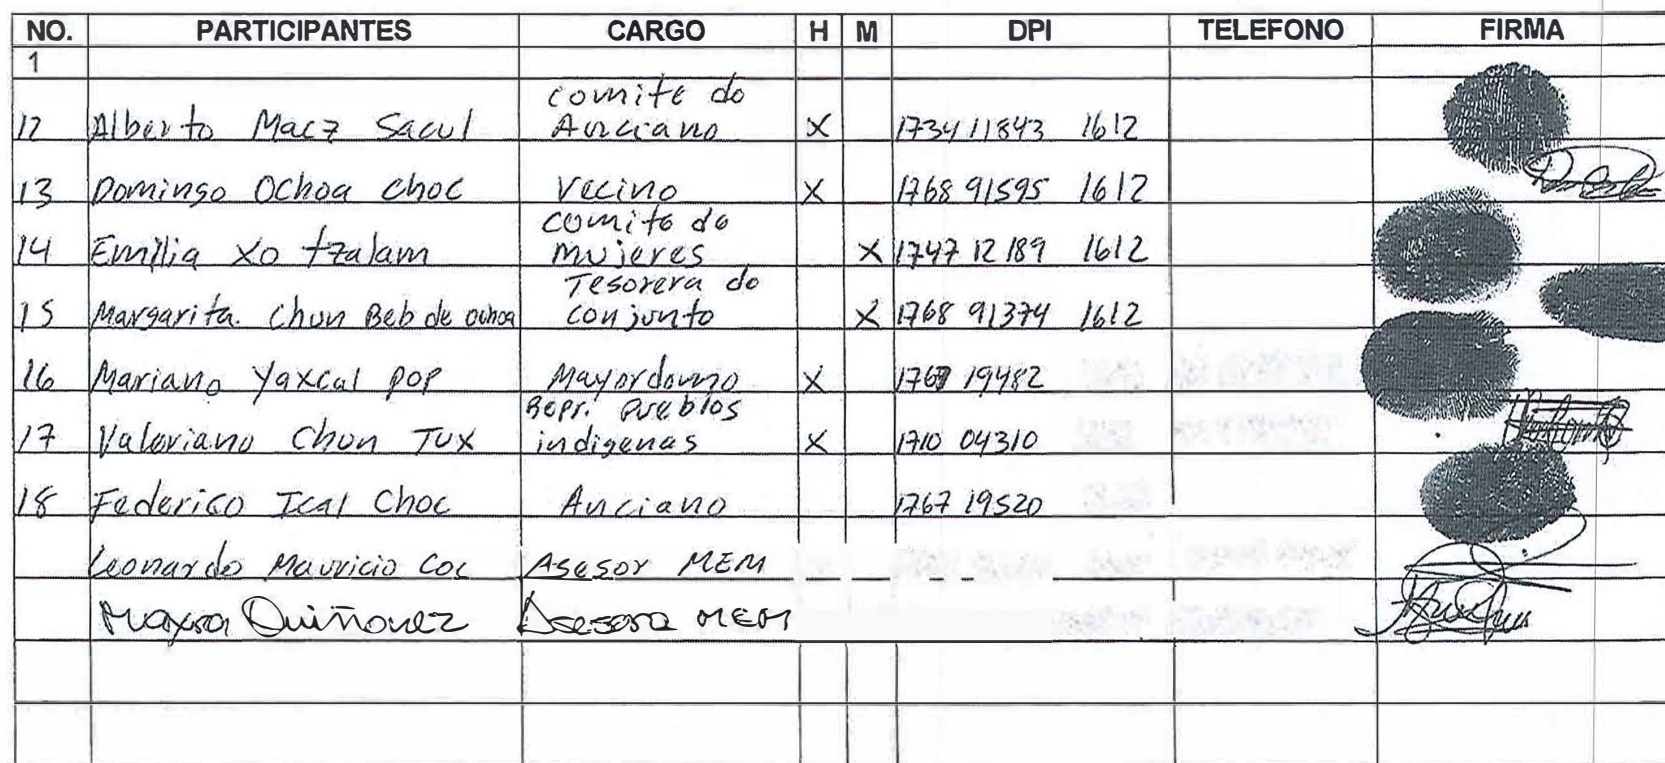 NO. PARTICIPANTES CARGO H M DPI TELEFONO FIRMA
1
12 Alberto Macz Sacul comite de Anciano X 1734 11843 1612
13 Domingo Ochoa choc Vecino X 1768 91595 1612
14 Emilia Xo tzalam comite de mujeres X 1747 12189 1612
15 Margarita. Chun Beb de ochoa Tesorera de conjunto X 1768 91374 1612
16 Mariano Yaxcal pop Mayordomo X 1767 19482
17 Valeriano Chun Tux Repr. Pueblos indigenas X 1710 04310
18 Federico Ical Choc Anciano 1767 19520
Leonardo Mauricio Coc Asesor MEM
Mayra Quiñonez Asesora MEM